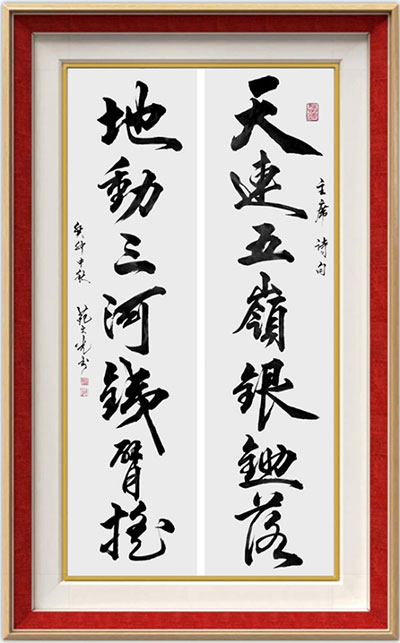 天連五嶺銀鋤落
主席诗句
地動三河鐵臂搖
癸卯中秋